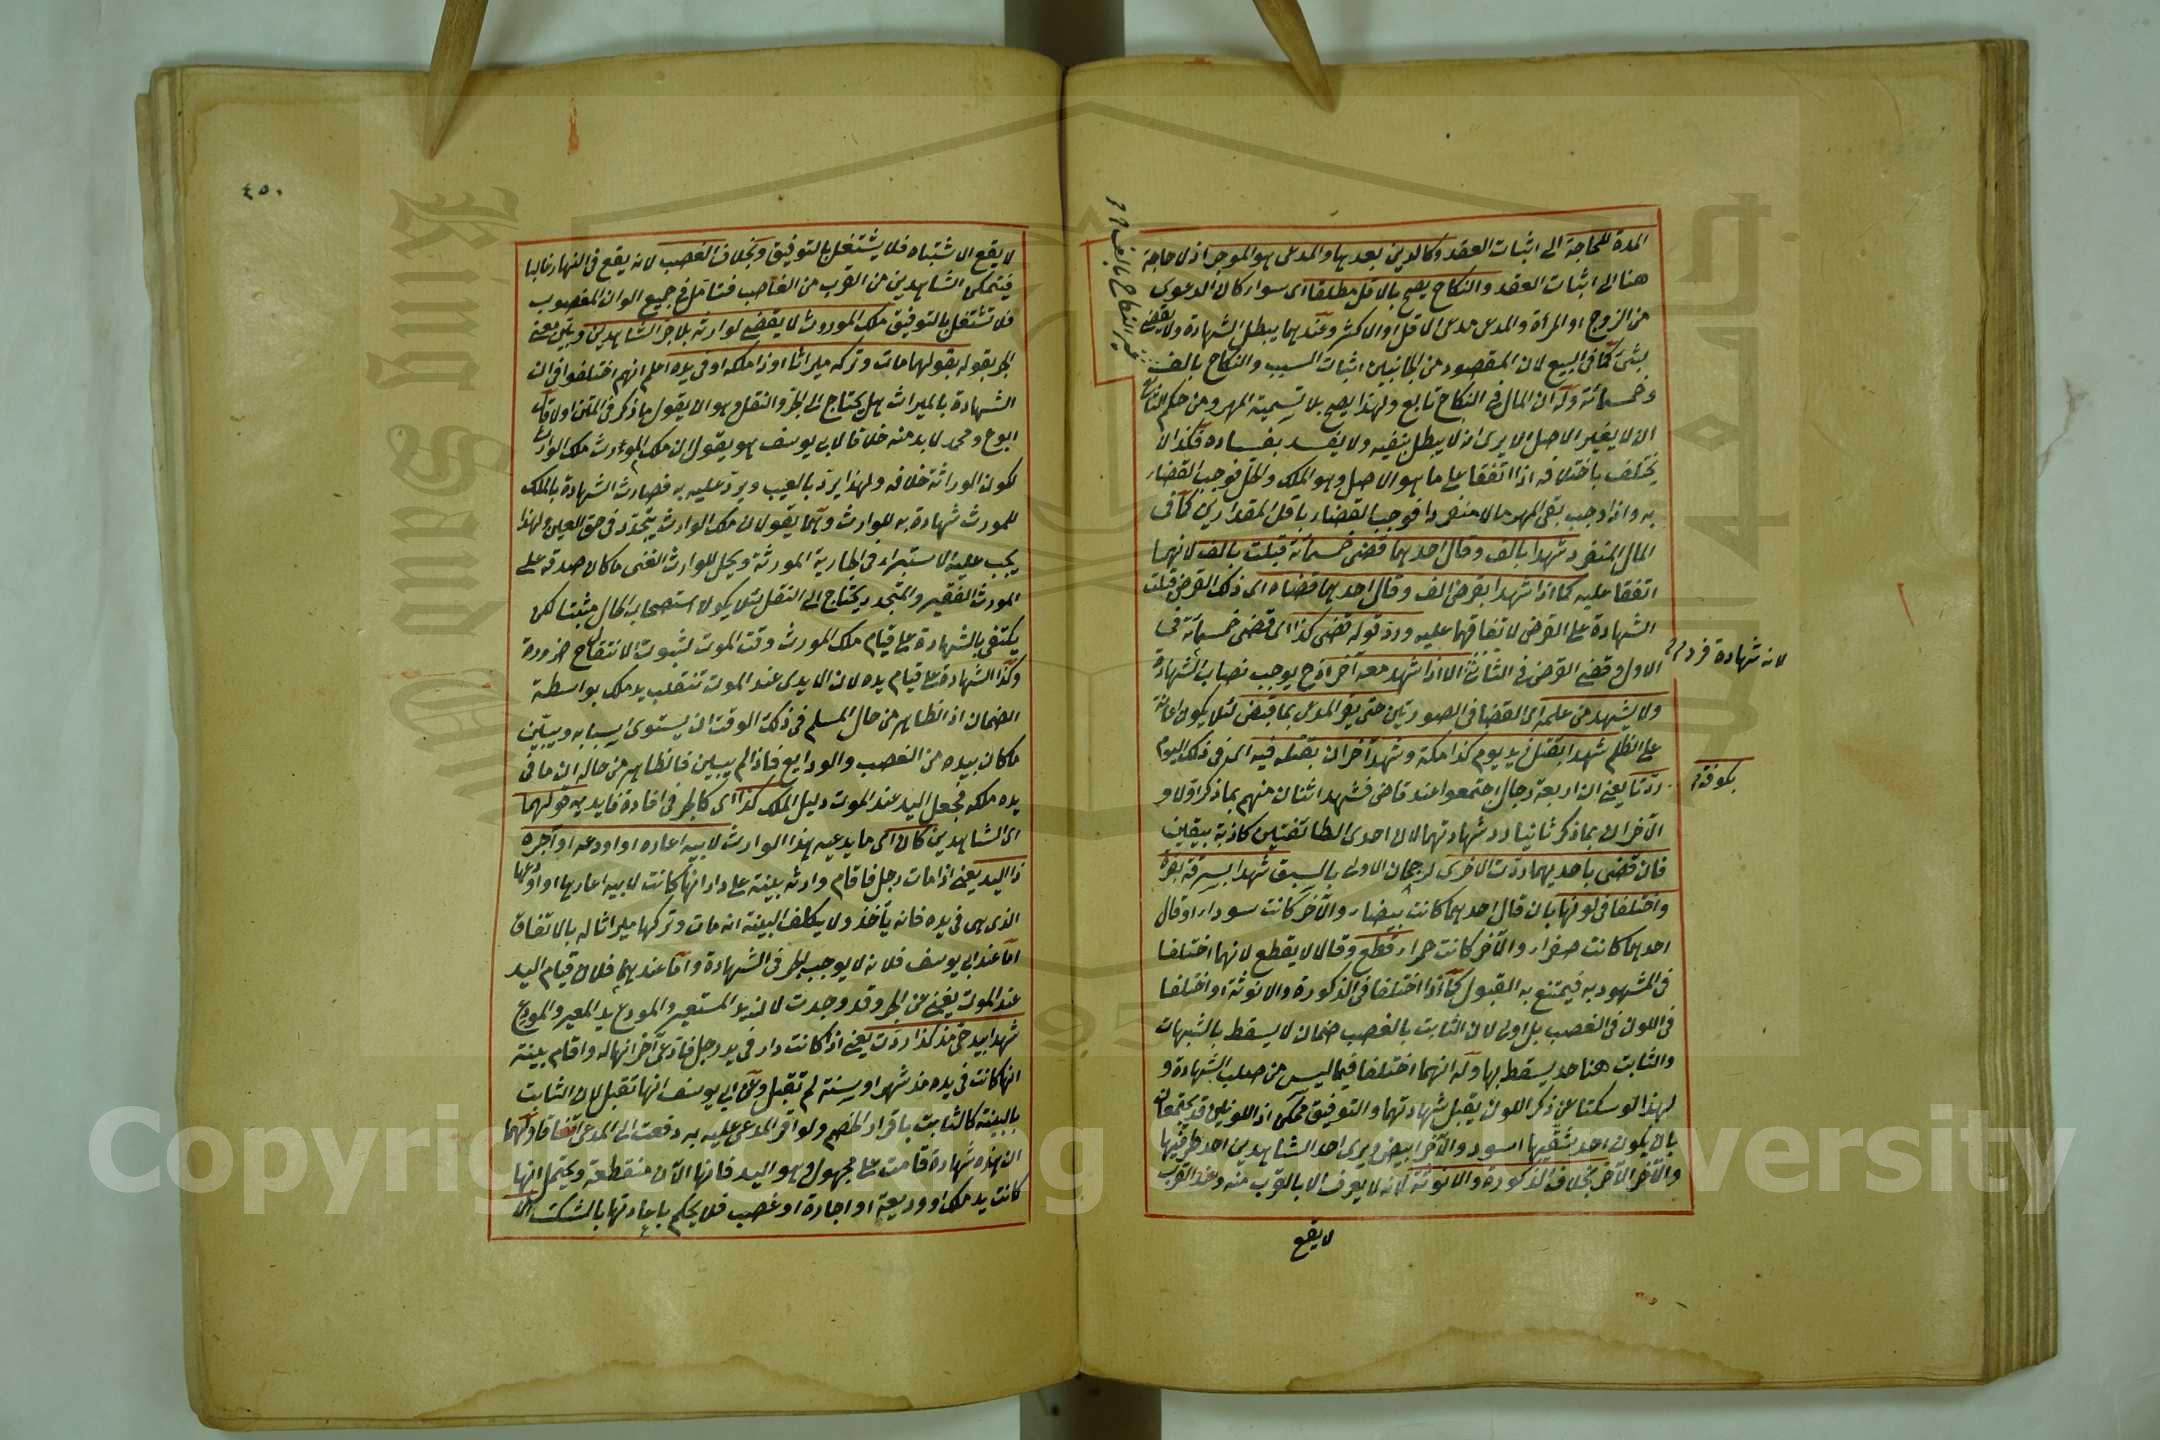 المدة للحاجة الى اثبات العقد وكالدين بعدها والمدعى هو الموجر اذ لا حاجة
هنا الى اثبات العقد والنكاح يصح بالاقل مطلقا اى سواء كان الدعوى
من الزوج او المرأة والمدعى مدعى الاقل او الاكثر وعندهما يبطل الشهادة ولا يقضى
بشئ كما فى البيع لان المقصود من الجانبين اثبات السبب والنكاح بالف
وخمسمائة وله ان المال فى النكاح تابع ولهذا يصح بلا تسمية المهر ومن حكم التابع
ان لا يغير الاصل الا يرى انه لا يبطل بنفيه ولا يفسد بفساده فكذا لا
يختلف باختلافه اذا اتفقا على ما هو الاصل وهو الملك والحل فوجب القضاء
به واذا وجب بقى المهر مالا منفردا فوجب القضاء باقل المقدارين كما فى
المال المنفرد شهدا بالف وقال احدهما قضى خمسمائة قبلت بالف لانهما
اتفقا عليه كما اذا شهدا بقرض الف وقال احدهما قضاه اى ذلك القرض قبلت
الشهادة على القرض لاتفاقهما عليه ورد قوله قضى كذا اى قضى خمسمائة فى
الاول وقضى القرض فى الثانى الا اذا شهد معه آخر اذ ح يوجب نصاب الشهادة
لانه شهادة فرد
ولا يشهد من علمه اى القضا فى الصورتين حتى يقر المدعى بما قبض لئلا يكون اعانة
على الظلم شهدا بقتل زيد يوم كذا بمكة وشهد آخران بقتله فيه اى فى ذلك اليوم
بكوفة
ردتا يعنى ان اربعة رجال اجتمعوا عند قاض فشهد اثنان منهم بما ذكر اولا و
الآخران بما ذكر ثانيا رد شهادتهما لان احدى الطائفتين كاذبة بيقين
فان قضى باحديهما ردت الاخرى لرجحان الاولى بالسبق شهدا بسرقة بقرة
واختلفا فى لونها بان قال احدهما كانت بيضاء والآخر كانت سوداء او قال
احدهما كانت صفراء والآخر كانت حمراء قطع وقالا لا يقطع لانهما اختلفا
فى المشهود به فيمتنع به القبول كما اذا اختلفا فى الذكورة والانوثة او اختلفا
فى اللون فى الغصب بل اولى لان الثابت بالغصب ضمان لا يسقط بالشبهات
والثابت هنا حد يسقط بها وله انهما اختلفا فيما ليس من صلب الشهادة و
لهذا لو سكتا عن ذكر اللون يقبل شهادتهما والتوفيق ممكن اذ اللونان قد يجتمعان
بان يكون احد شقيها اسود والآخر ابيض ويرى احد الشاهدين احد طرفيها
والآخر الآخر بخلاف الذكورة والانوثة لانه لا يعرف الا بالقرب منه وعند القرب
لا يقع
٤٥٠
لا يقع الاشتباه فلا يشتغل بالتوفيق وبخلاف الغصب لانه يقع فى النهار غالبا
فيتمكن الشاهدين من القرب من الغاصب فتأمل فى جميع الوان المغصوب
فلا تشتغل بالتوفيق ملك المورث لا يقضى لوارثه بلا جر الشاهدين وبين معنى
الجر بقوله بقولهما مات وتركه ميراثا او ذا ملكه او فى يده اعلم انهم اختلفوا فى ان
الشهادة بالميراث هل يحتاج الى الجر والنقل وهو ان يقول ما ذكر فى المتن اولا قال
ابو ح ومحمد لا بد منه خلافا لابى يوسف هو يقول ان ملك المورث ملك الوارث
لكون الوراثة خلافة ولهذا يرد بالعيب ويرد عليه به فصارت الشهادة بالملك
للمورث شهادة به للوارث وهما يقولان ملك الوارث يتجدد فى حق العين ولهذا
يجب عليه الاستبراء فى الجارية المورثة ويحل للوارث الغنى ما كان صدقة على
المورث الفقير والمتجدد يحتاج الى النقل لئلا يكون استصحاب الحال مثبتا لكن
يكتفى بالشهادة على قيام ملك المورث وقت الموت لثبوت الانتقال ضرورة
وكذا الشهادة على قيام يده لان الايدى عند الموت تنقلب يد ملك بواسطة
الضمان اذ الظاهر من حال المسلم فى ذلك الوقت ان يستوى اسبابه ويبين
ما كان بيده من الغصب والودايع فاذا لم يبين فالظاهر من حاله ان ما فى
يده ملكه فجعل اليد عند الموت دليل الملك كذا اى كالجر فى افادة فايدته قولهما
اى الشاهدين كان اى ما يدعيه هذا الوارث لابيه اعاره او اودعه او آجره
ذا اليد يعنى اذا مات رجل فاقام وارثه بينة على دار انها كانت لابيه اعارها او اودعها
الذى هى فى يده فانه يأخذ ولا يكلف البينة انه مات وتركها ميراثا له بالاتفاق
اما عند ابى يوسف فلانه لا يوجب الجر فى الشهادة واما عندهما فلان قيام اليد
عند الموت يغنى عن الجر وقد وجدت لان يد المستعير والمودع يد المعير والمودع
شهدا بيد حى مذ كذا ردت يعنى اذا كانت دار فى يد رجل فادعى آخر انها له واقام بينة
انها كانت فى يده مذ شهر او سنة لم تقبل وعن ابى يوسف انها تقبل لان الثابت
بالبينة كالثابت باقرار الخصم ولو اقر المدعى عليه به دفعت الى المدعى اتفاقا ولهما
ان هذه شهادة قامت على مجهول وهو اليد فانها الآن منقطعة ويحتمل انها
كانت يد ملك او وديعة او اجارة او غصب فلا يحكم باعادتها بالشك